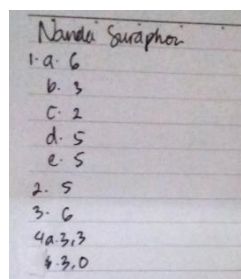 Nanda Suraphor
1. a. 6
b. 3
c. 2
d. 5
e. 5
2. 5
3. 6
4a. 3,3
b. 3,0